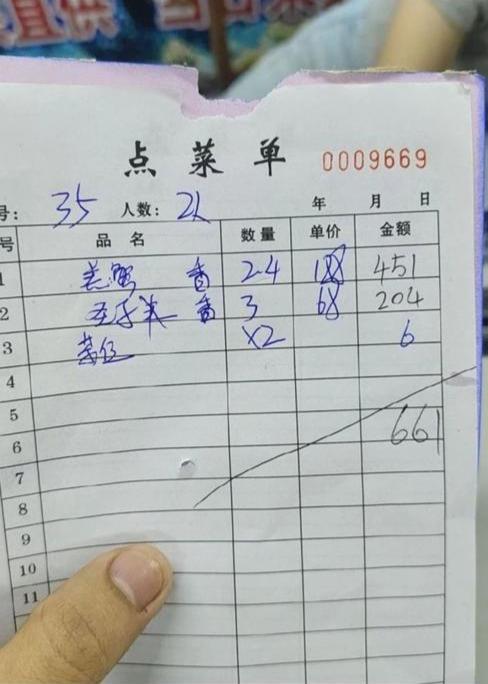 点菜单 0009669
号: 35 人数: 2人 年 月 日
号 品名 数量 单价 金额
1 羔蟹 香 2.4 188 451
2 香 3 68 204
3 茶位 X2 6
4
5
661
6
7
8
9
10
11